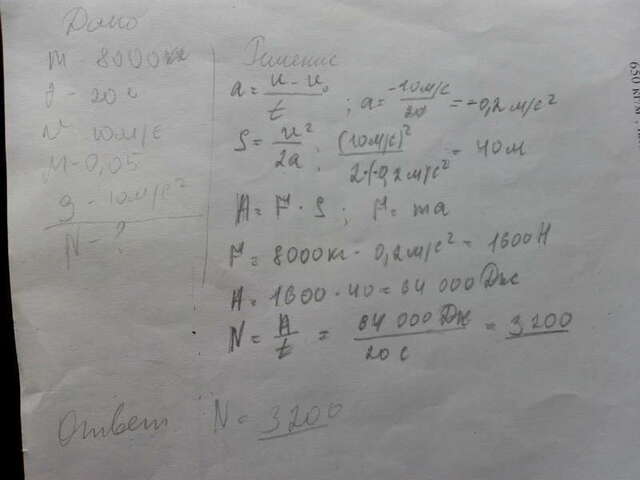 Дано
m - 8000кг
t - 20с
v - 10м/с
м - 0,05
g - 10м/с²
N - ?
Решение
a = v - v₀ / t ; a = -10м/с / 20 = -0,2м/с²
S = v² / 2a ; (10м/с)² / 2·(-0,2м/с² = 40м
A = F · S ; F = ma
F = 8000кг · 0,2м/с² = 1600Н
A = 1600 · 40 = 64 000 Дж
N = A / t = 64 000 Дж / 20 с = 3200
Ответ N = 3200
650 кг/м